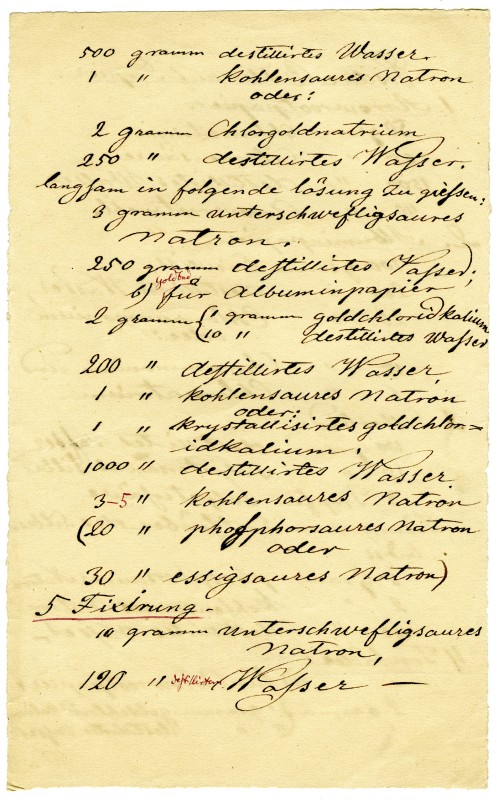 500 gramm destillirtes Wasser.
1 " kohlensaures Natron
oder:
2 gramm Chlorgoldnatrium
250 " destillirtes Wasser.
langsam in folgende lösung zu giessen:
3 gramm unterschwefligsaures
Natron.
250 gramm destillirtes Wasser);
b) Goldbad für Albuminpapier
2 gramm (1 gramm goldchloridkalium
10 " destillirtes Wasser
200 " destillirtes Wasser,
1 " kohlensaures Natron
oder:
1 " krystallisirtes goldchlor=
idkalium.
1000 " destillirtes Wasser
3-5 " kohlensaures Natron
(20 " phosphorsaures Natron
oder
30 " essigsaures Natron)
5 Fixirung.
10 gramm unterschwefligsaures
Natron,
120 " destillirtes Wasser —